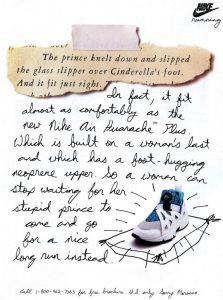 NIKE
running
The prince knelt down and slipped
the glass slipper over Cinderella's foot.
And it fit just right.
In fact, it fit
almost as comfortably as the
new Nike Air Huarache™ Plus.
Which is built on a woman's last
and which has a foot-hugging
neoprene upper. So a woman can
stop waiting for her
stupid prince to
come and go
for a nice
long run instead.
for free brochure. U.S. only. Sorry